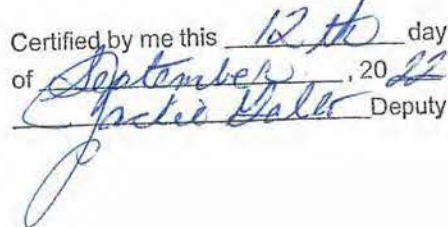 Certified by me this 12th day
of September, 2022
Jackie Deputy